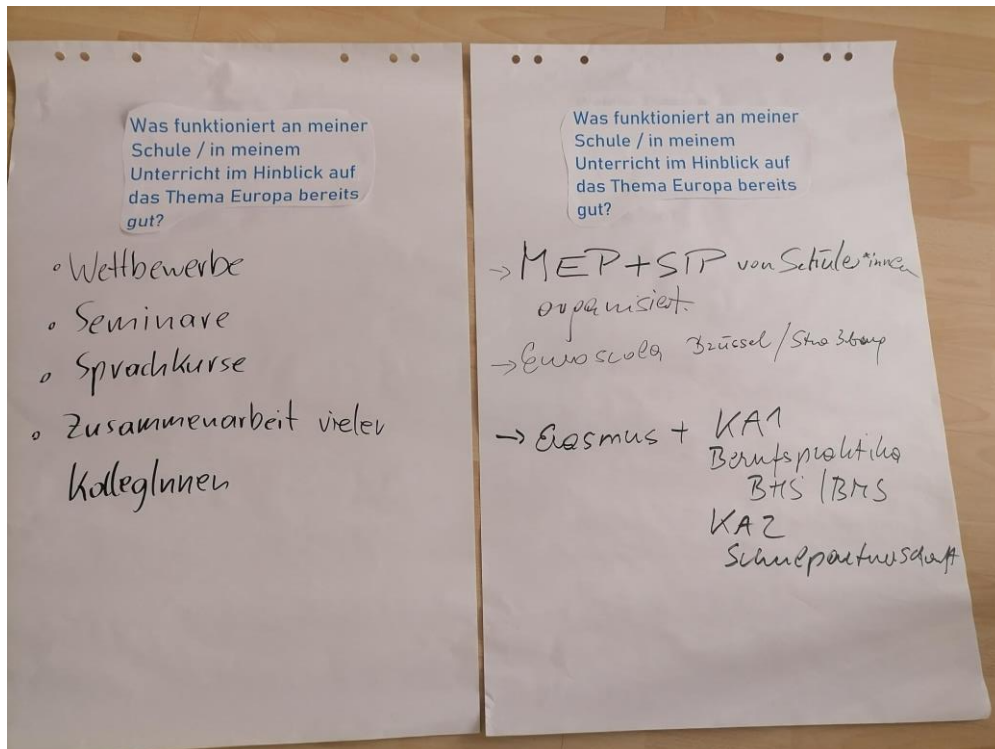 Was funktioniert an meiner
Schule / in meinem
Unterricht im Hinblick auf
das Thema Europa bereits
gut?
Wettbewerbe
Seminare
Sprachkurse
Zusammenarbeit vieler
KollegInnen
Was funktioniert an meiner
Schule / in meinem
Unterricht im Hinblick auf
das Thema Europa bereits
gut?
→ MEP + STP von Schüler*innen
organisiert.
→ Euroscola Brüssel / Straßburg
→ Erasmus + KA1
Berufspraktika
BHS / BMS
KA2
Schulpartnerschaft